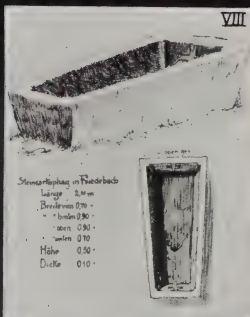 VIII
Steinsarkophag in Friedersbach
Länge 2,10 m
Breite innen 0,70 "
" " außen 0,90 "
" oben 0,90 "
" unten 0,70
Höhe 0,50 "
Dicke 0,10 "
oben